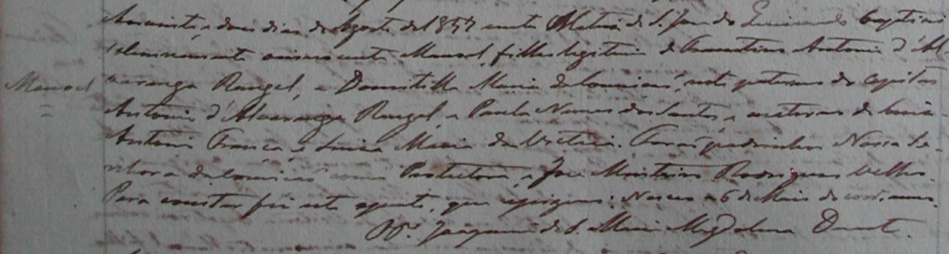 dous dias de Agosto de 1857 nesta Matriz de S. João do baptisei
solemnemente innocente Manoel, filho legitimo de Antonio d'Al
Manoel
varenga Rangel, e Domitilla Maria da Conceicão, neto paterno do capitão
Antonio d'Alvarenga Rangel, e Paula Nunes dos Santos, e materno de
Antonio França, e Luiza Maria da Victoria. Forão padrinhos Nossa Se
nhora da Conceicão como Protectora, e José Monteiro Rodrigues Velho.
Para constar fiz este que assignei. Nasceu a 6 de Maio do
Joaquim de S. Maria Magdalena Duarte.